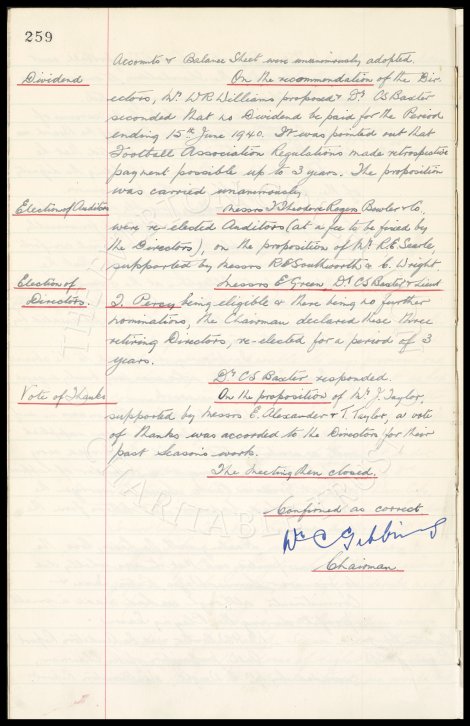 259
Accounts & Balance Sheet were unanimously adopted.
Dividend
On the recommendation of the Dir-
ectors, Mr. W R Williams proposed & Dr. C S Baxter
seconded that no Dividend be paid for the Period
ending 15th June 1940. It was pointed out that
Football Association Regulations made retrospective
payment possible up to 3 years. The proposition
was carried unanimously.
Election of Auditors
Messrs T Theodore Rogers Bowler & Co.
were re-elected Auditors (at a fee to be fixed by
the Directors), on the proposition of Mr. R E Searle,
supported by Messrs R E Southworth & C. Wright.
Election of
Directors.
Messrs E Green, Dr. C S Baxter & Lieut
J. Percy being eligible & there being no further
nominations, the Chairman declared these three
retiring Directors, re-elected for a period of 3
years.
Dr. C S Baxter responded.
Vote of Thanks
On the proposition of Mr. J. Taylor,
supported by Messrs E. Alexander & T. Taylor, a vote
of thanks was accorded to the Directors for their
past season's work.
The Meeting then closed.
Confirmed as correct
Wm C Gibbins
Chairman
CHARITABLE TRUST